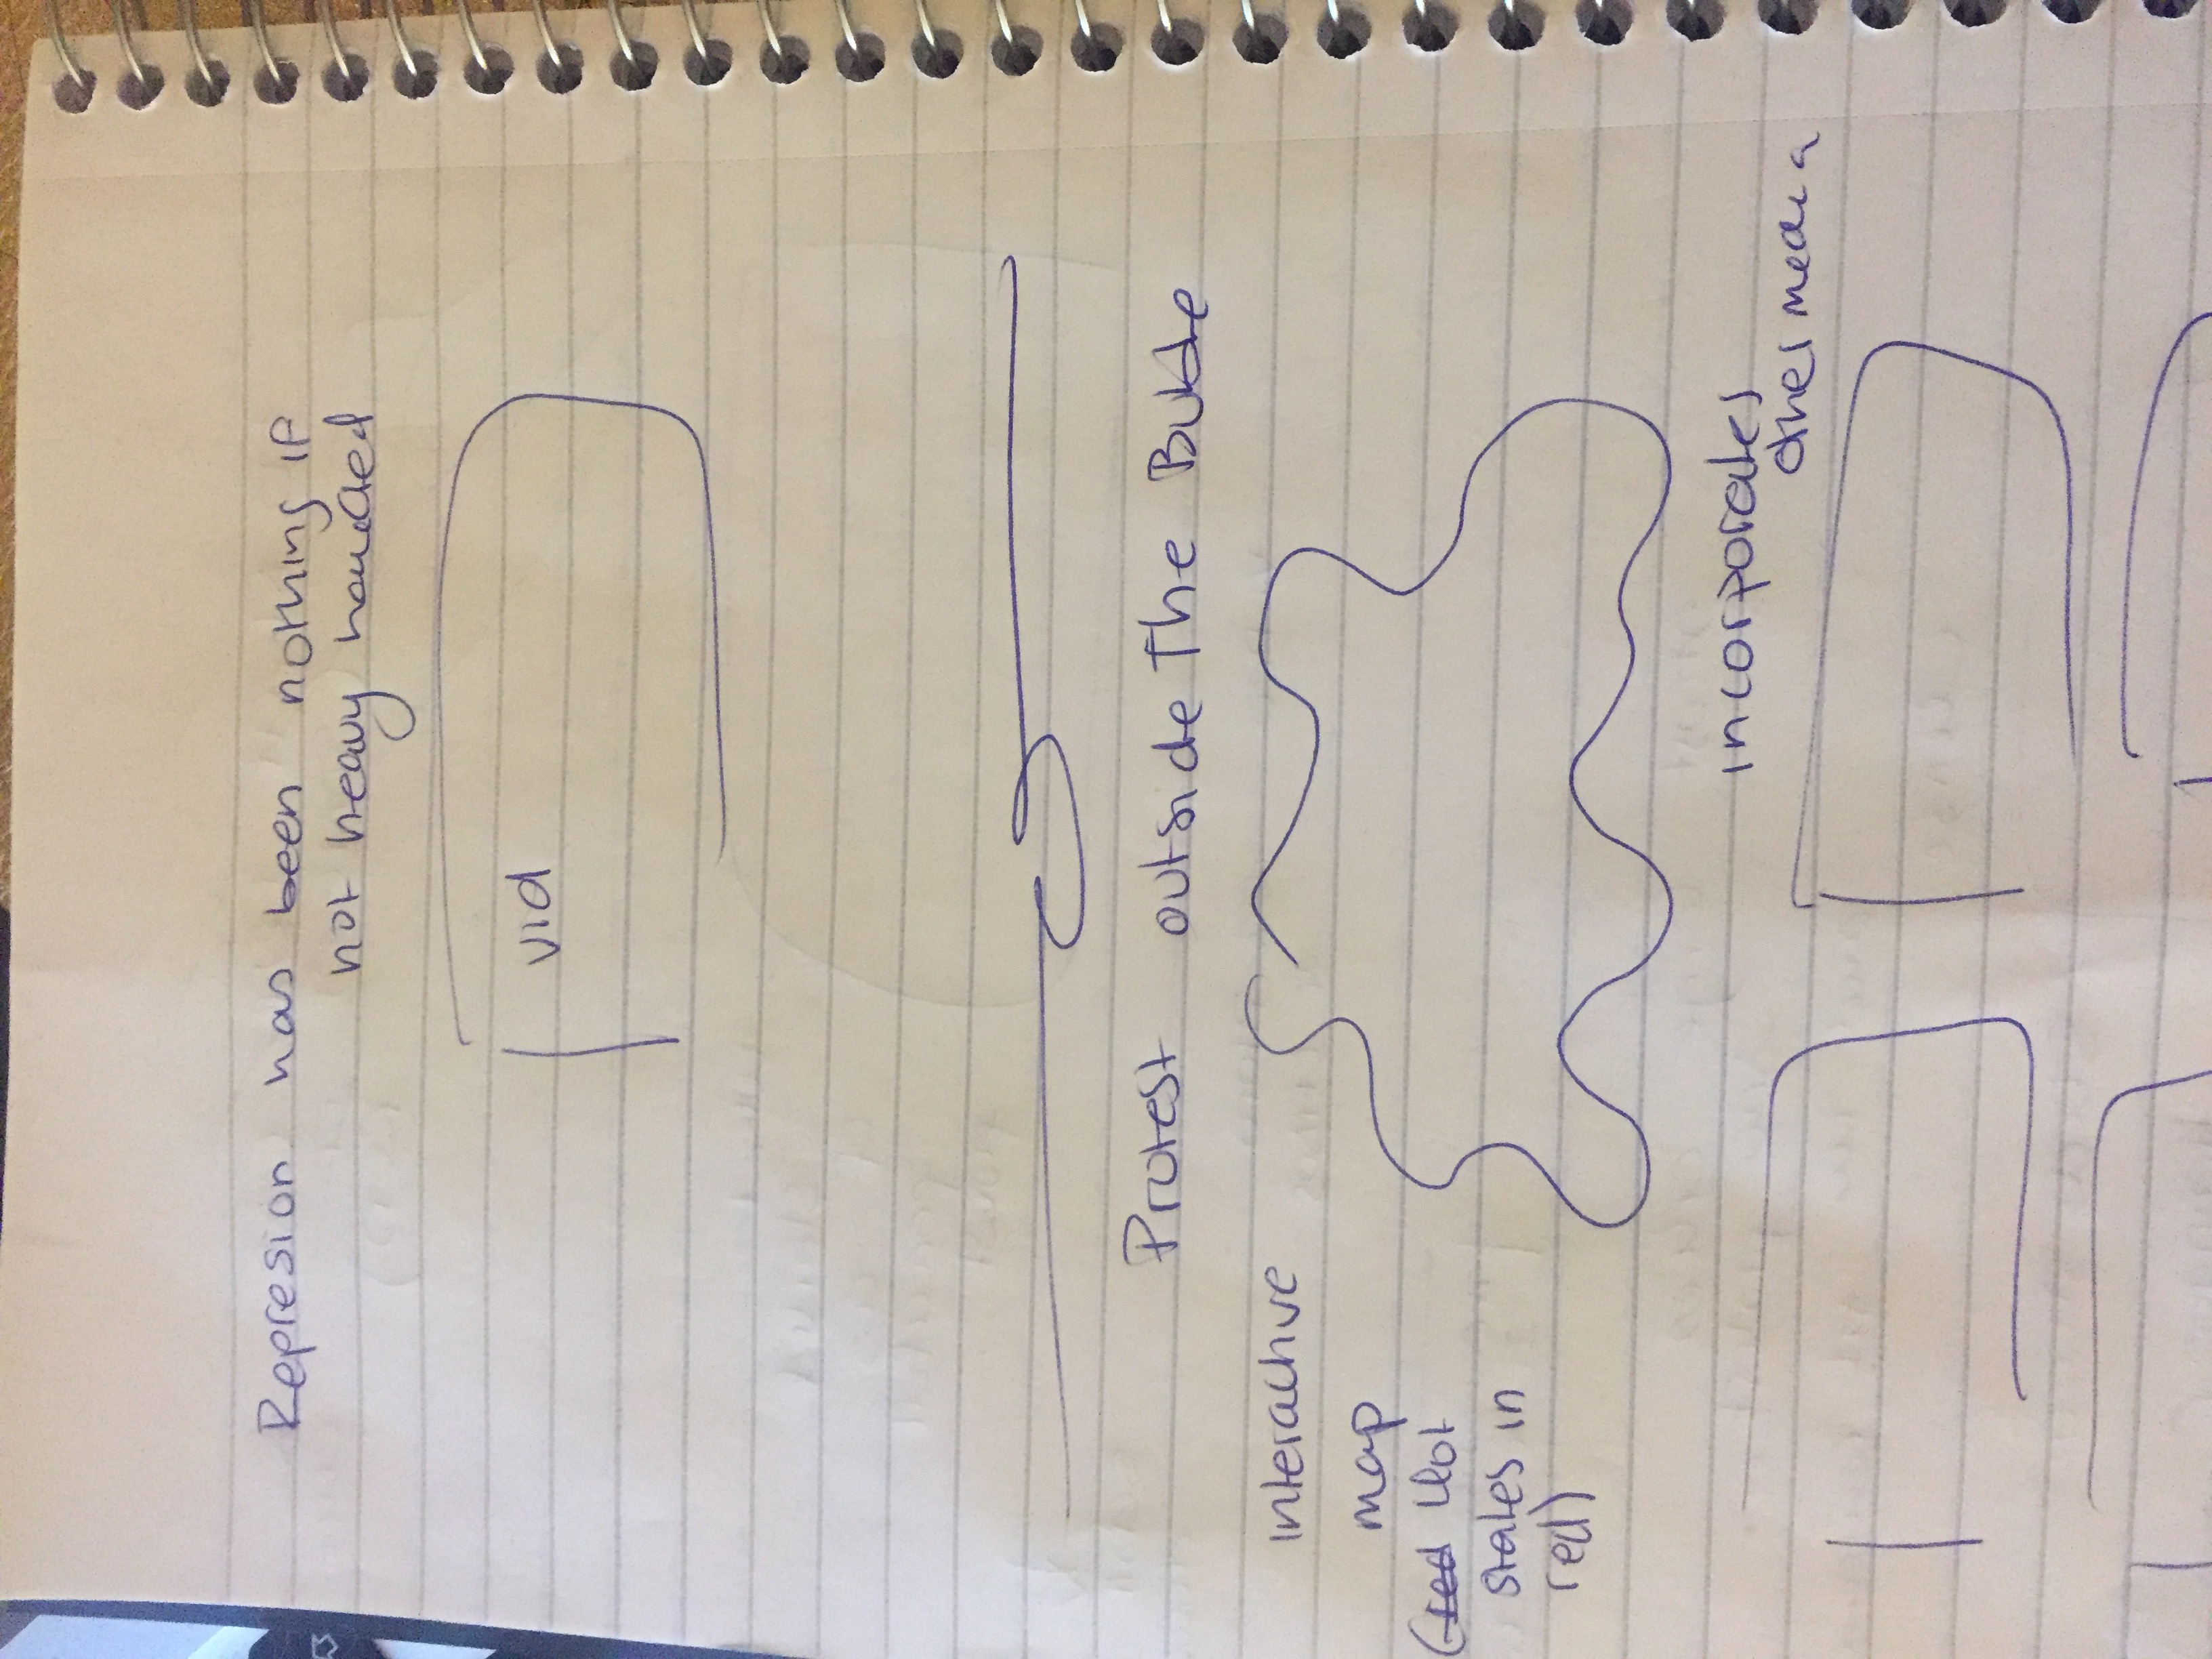 Represion has been nothing if
not heavy handed
vid
Protest outside The Bubble
interactive
map
(red Hot
states in
red)
incorporates
other media